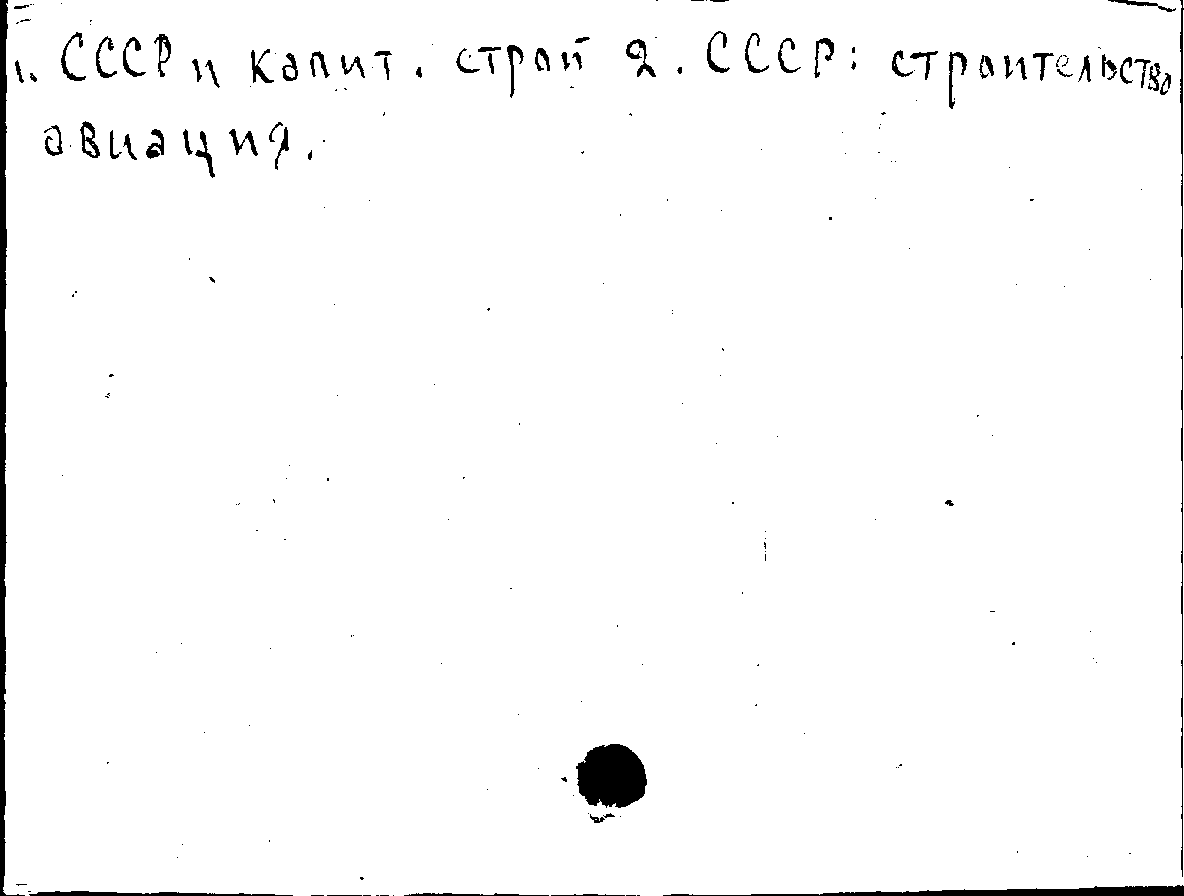 1. СССР и капит. строй 2. СССР: строительство
авиация.